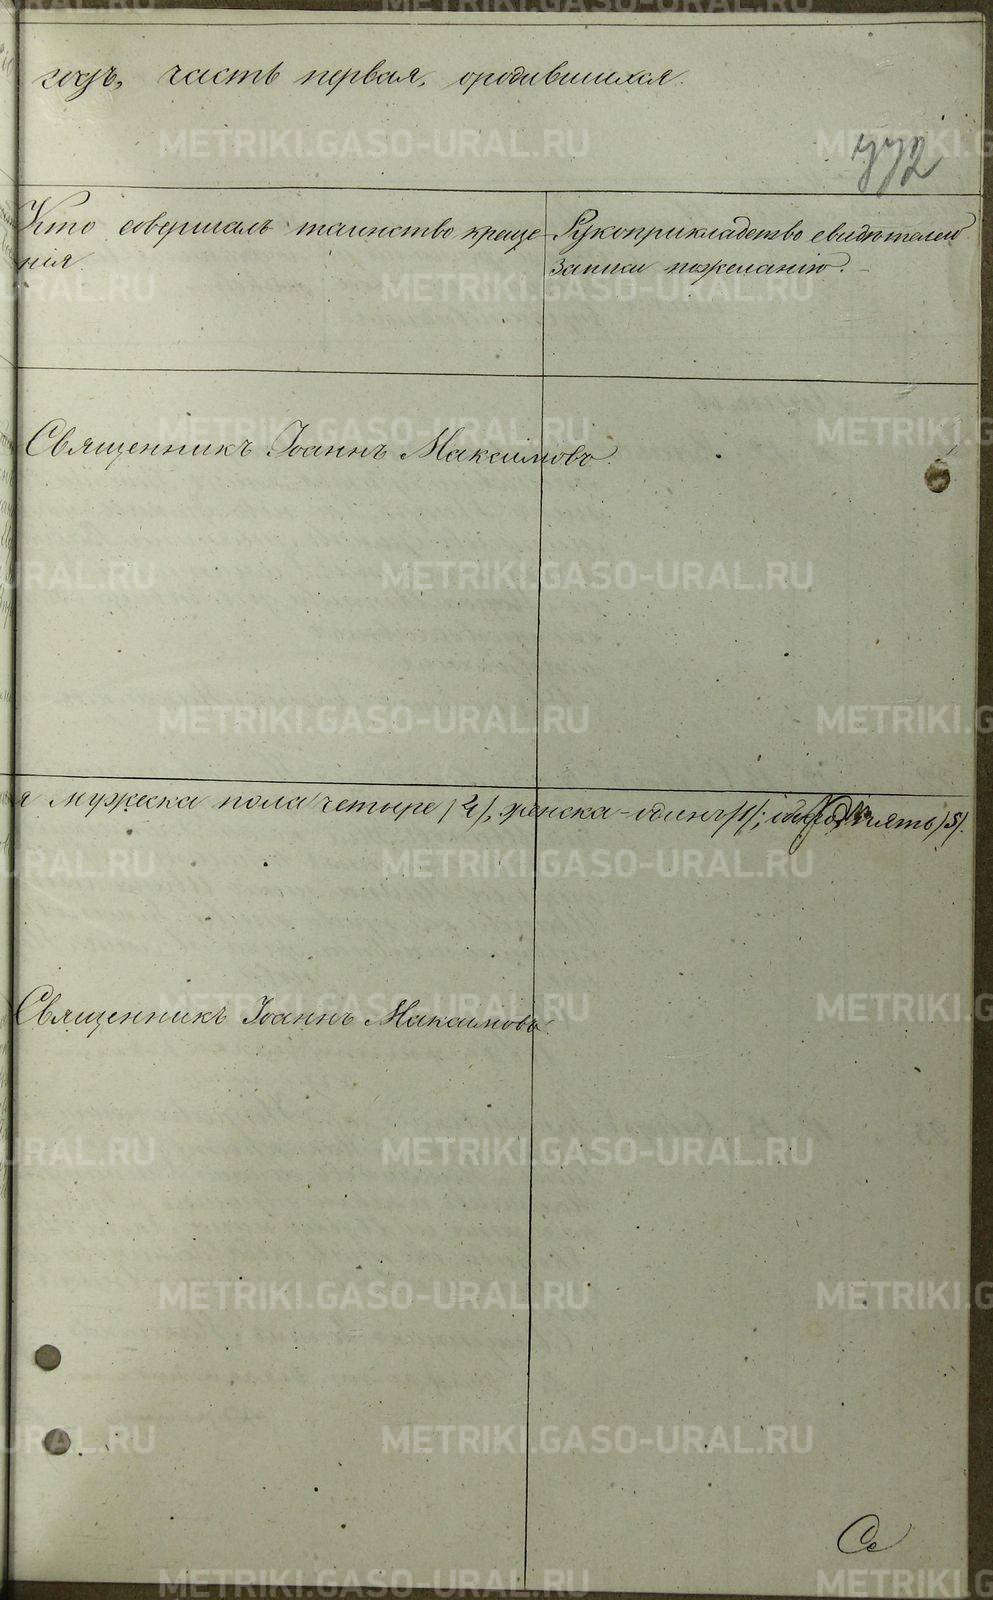 годъ, часть первая, ородившихся.
772
Кто совершалъ таинство креще
нія.
Рукоприкладство свидѣтелей
записи пожеланію.
Священникъ Іоаннъ Максимовъ.
я мужеска пола четыре /4/, женска - одинъ /1/; пять /5/.
Священникъ Іоаннъ Максимовъ
Се
METRIKI.GASO-URAL.RU